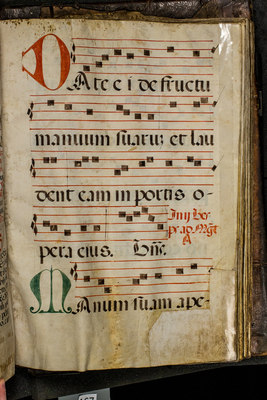 DAte ei de fructu
manuum suaru: et lau
dent eam in portis o-
pera eius.
In ij Ves
MAnum suam ape-